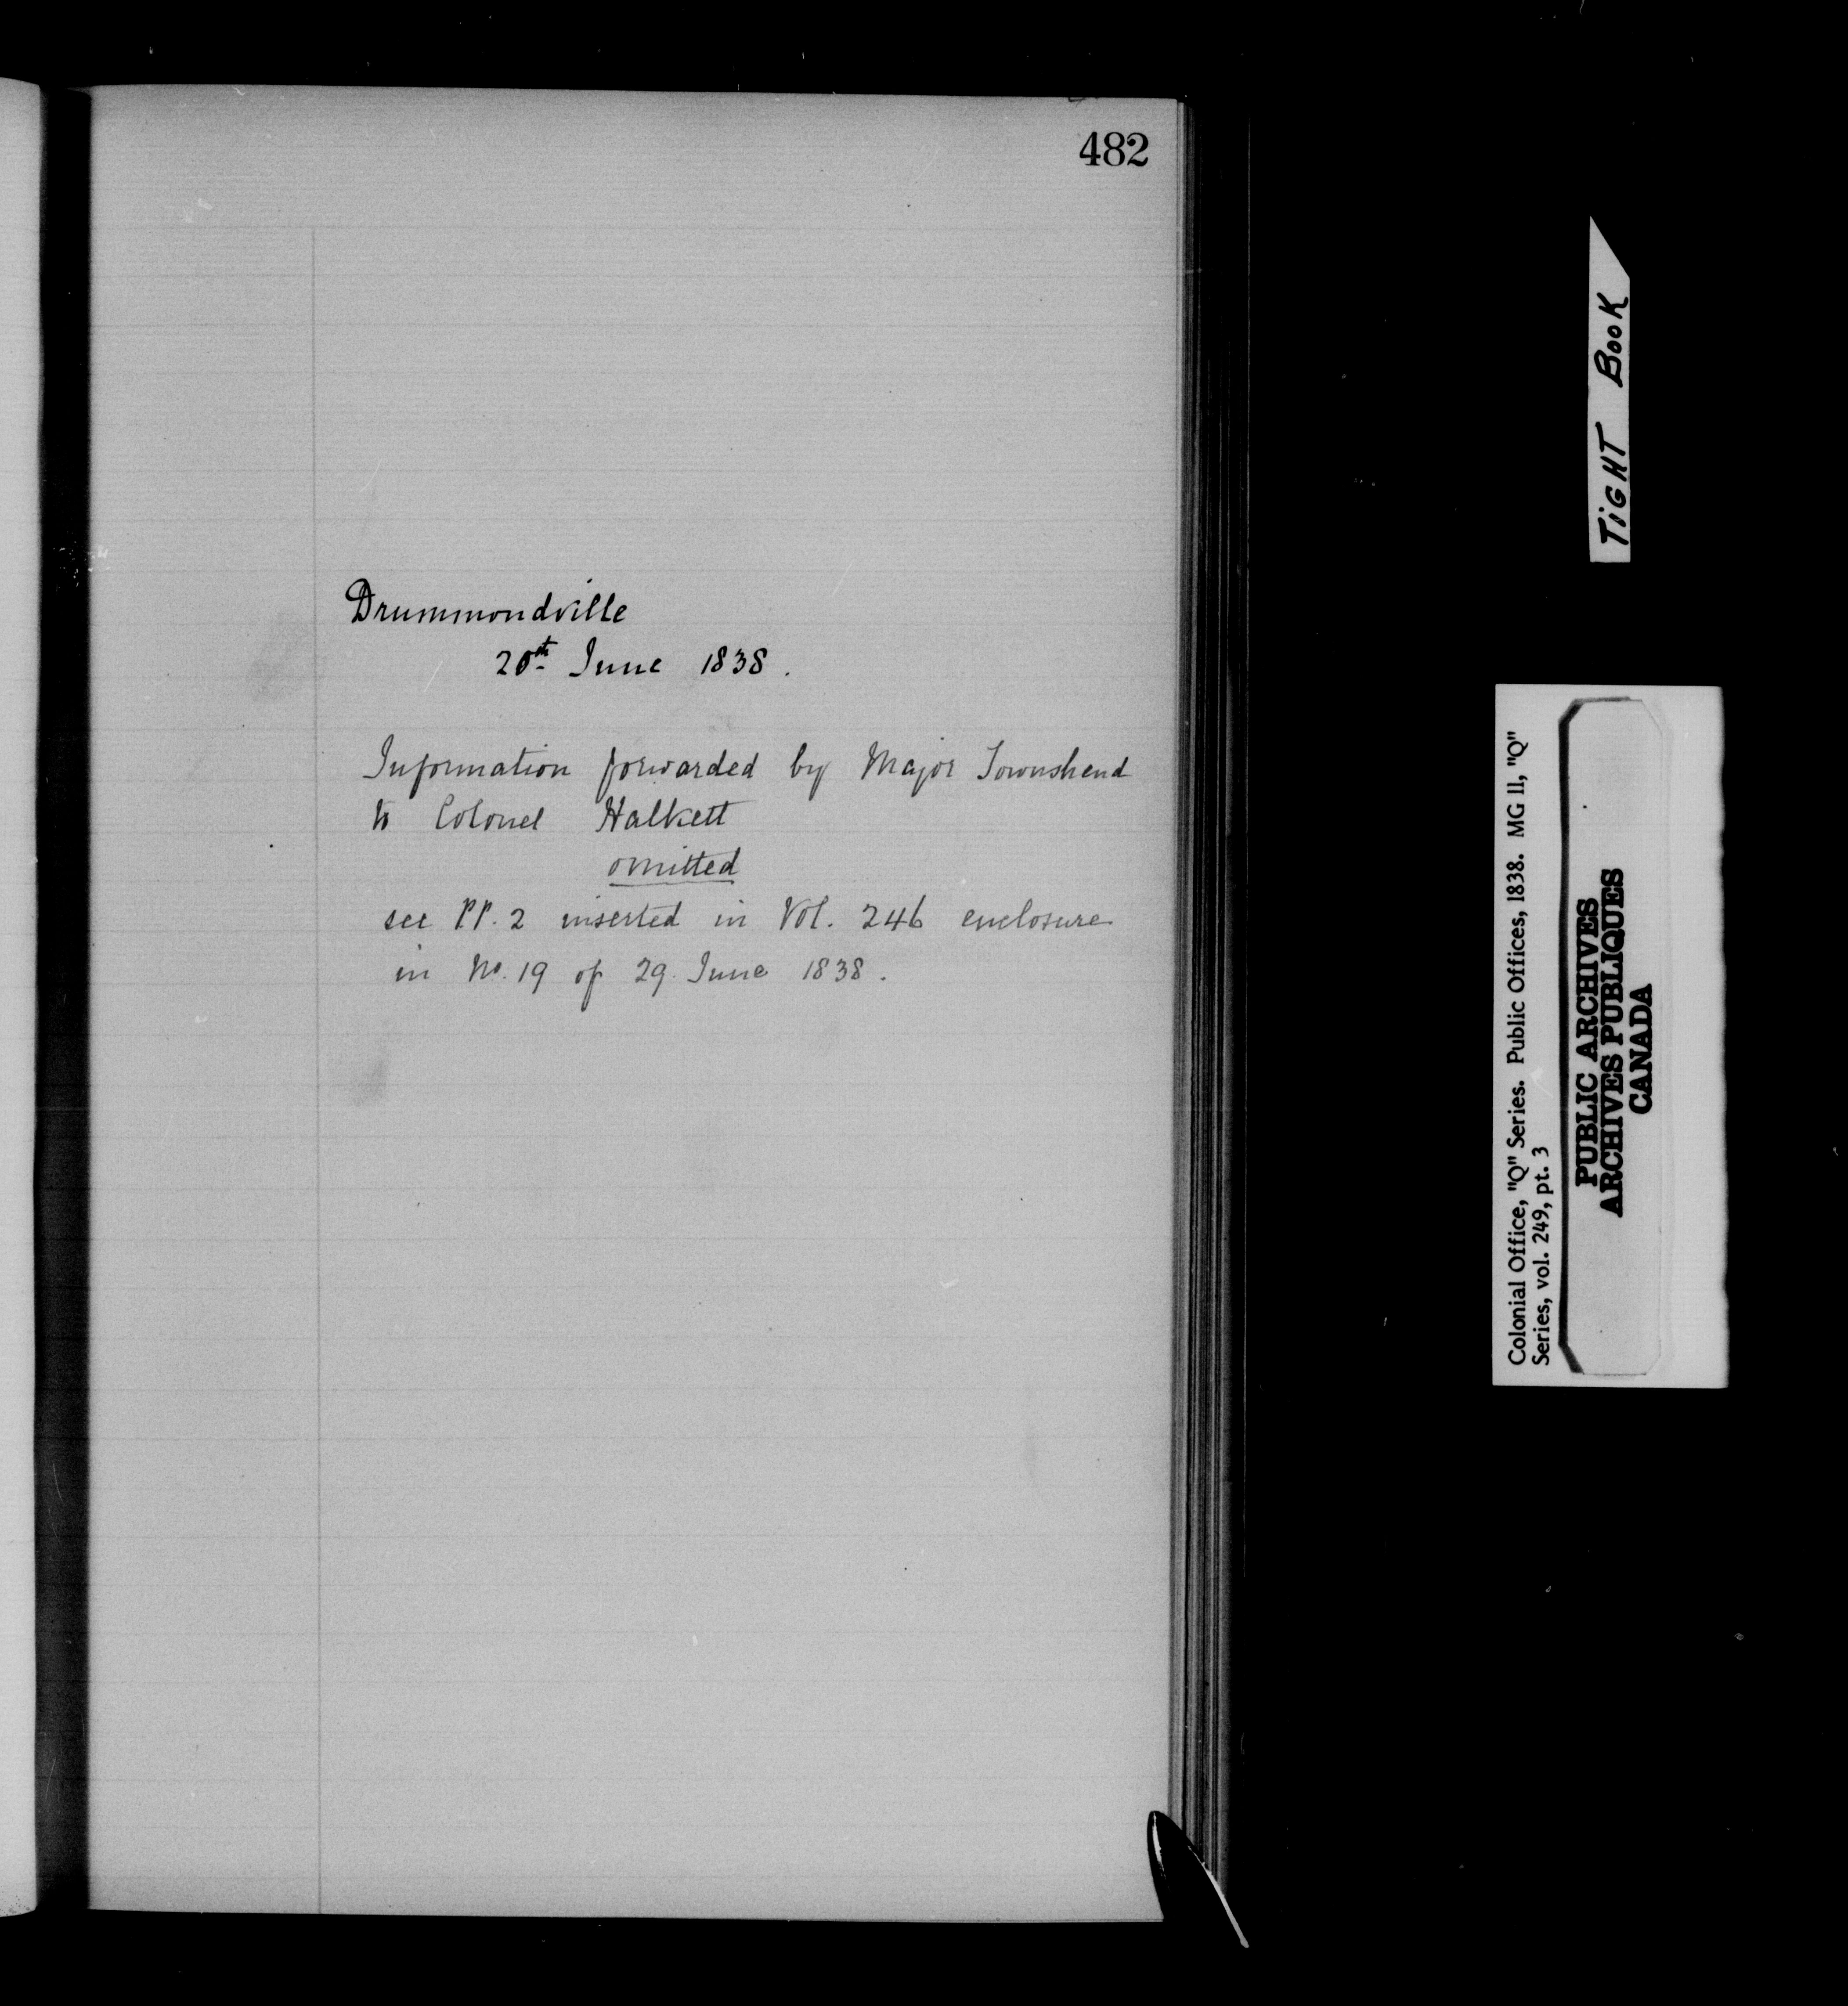 482
Drummondville
20th June 1838.
Information forwarded by Major Townshend
to Colonel Halkett
omitted
see PP. 2 inserted in Vol. 246 enclosure
in No. 19 of 29 June 1838.
TiGHT BooK
Colonial Office, "Q" Series. Public Offices, 1838. MG 11, "Q"
Series, vol. 249, pt. 3
PUBLIC ARCHIVES
ARCHIVES PUBLIQUES
CANADA